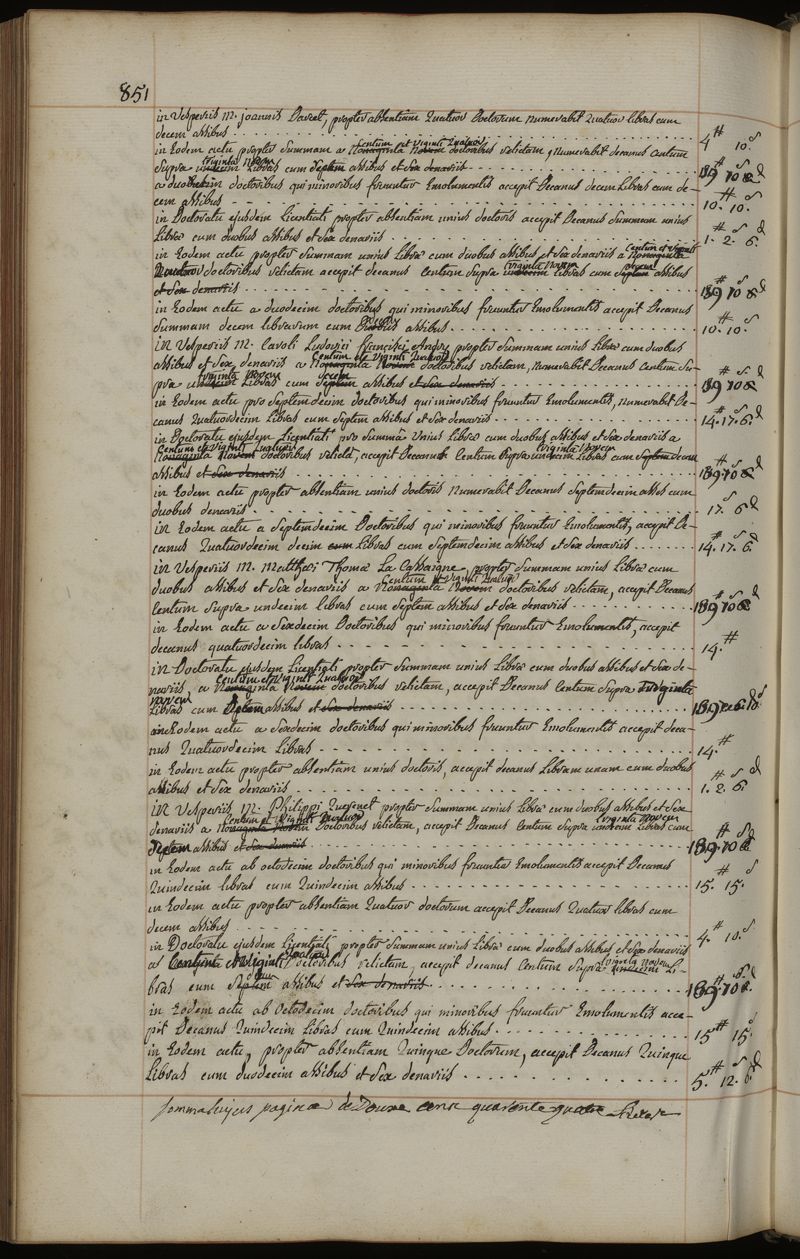 851
in Vesperiis M. joannis Daret, propter absentiam Quatuor Doctorum numerabit Quatuor libras cum
decem assibus 4 10.
in Eodem actu propter summam a Nonaginta Novem Centum et Viginti Quatuor doctoribus relictam, numerabit decanus Centum
Supra undecim triginta Novem Libras cum Septem assibus et Sex denariis 139 10
a duodecim doctoribus qui minoribus fruuntur Emolumentis accepit Decanus decem Libras cum de-
cem assibus 10. 10.
in Doctoratu ejusdem Licentiati propter absentiam unius doctoris accepit Decanus summam unius
Librae cum duobus assibus et Sex denariis 1. 2. 6.
in Eodem actu propter summam unius Librae cum duobus assibus et Sex denariis a Nonaginta Centum et Viginti
Quatuor doctoribus relictam accepit decanus Centum supra undecim triginta Novem libras cum Septem decem assibus
et Sex denariis 139 10
in Eodem actu a duodecim doctoribus qui minoribus fruuntur Emolumentis accepit Decanus
Summam decem librarum cum decem assibus 10. 10.
in Vesperiis M. Caroli Ludovici francisci Andry propter Summam unius Librae cum duobus
assibus et Sex denariis a Nonaginta Novem Centum et Viginti Quatuor doctoribus relictam, numerabit Decanus Centum Su-
pra undecim triginta Novem Libras cum Septem decem assibus et Sex denariis 139 10
in Eodem actu pro Septemdecim doctoribus qui minoribus fruuntur Emolumentis, numerabit De-
canus Quatuordecim Libras cum Septem assibus et Sex denariis 14. 17. 6.
in Doctoratu ejusdem Licentiati pro Summa Unius Librae cum duobus assibus et Sex denariis a
Nonaginta Novem Centum et Viginti Quatuor doctoribus relictâ, accepit Decanus Centum Supra undecim triginta Novem Libras cum Septem decem
assibus et Sex denariis 139 10
in Eodem actu propter absentiam unius doctoris numerabit Decanus Septemdecim asses cum
duobus denariis 17. 6
in Eodem actu a Septemdecim Doctoribus qui minoribus fruuntur Emolumentis, accepit De-
canus Quatuordecim decim cum Libras cum Septemdecim assibus et Sex denariis 14. 17. 6.
in Vesperiis M. Matthaei Thomae La Cassaigne, propter Summam unius Librae cum
duobus assibus et Sex denariis a Nonaginta Novem Centum et Viginti Quatuor doctoribus relictam, accepit Decanus
Centum Supra undecim libras cum Septem assibus et Sex denariis 139 10
in Eodem actu a Sexdecim Doctoribus qui minoribus fruuntur Emolumentis, accepit
decanus quatuordecim libras 14.
in Doctoratu ejusdem Licentiati propter Summam unius Librae cum duobus assibus et Sex de-
nariis a Nonaginta Novem Centum et Viginti Quatuor doctoribus relictam, accepit Decanus Centum Supra triginta
novem Libras cum Septem assibus et Sex denariis 139 10
in Eodem actu a Sexdecim doctoribus qui minoribus fruuntur Emolumentis accepit deca-
nus Quatuordecim Libras 14.
in Eodem actu propter absentiam unius doctoris, accepit decanus Libram unam cum duobus
assibus et Sex denariis 1. 2. 6.
in Vesperiis M. Philippi Quesnet propter Summam unius Librae cum duobus assibus et Sex
denariis a Nonaginta Novem Centum et Viginti Quatuor Doctoribus relictam, accepit Decanus Centum Supra undecim triginta Novem Libras cum
Septem assibus et Sex denariis 139 10
in Eodem actu ab octodecim doctoribus qui minoribus fruuntur Emolumentis accepit Decanus
Quindecim libras cum Quindecim assibus 15. 15.
in Eodem actu propter absentiam Quatuor doctorum accepit Decanus Quatuor libras cum
decem assibus 4. 10.
in Doctoratu ejusdem Licentiati propter Summam unius Librae cum duobus assibus et Sex denariis
a Centum et Viginti Quatuor doctoribus relictam, accepit decanus Centum Supra undecim triginta Novem Li-
bras cum Septem decem assibus et Sex denariis 139 10
in Eodem actu ab Octodecim doctoribus qui minoribus fruuntur Emolumentis acce-
pit Decanus Quindecim Libras cum Quindecim assibus 15 15.
in Eodem actu, propter absentiam Quinque Doctorum, accepit Decanus Quinque
Libras cum duodecim assibus et Sex denariis 5. 12. 6.
Somma hujus paginae de Douze cens quarente quatre